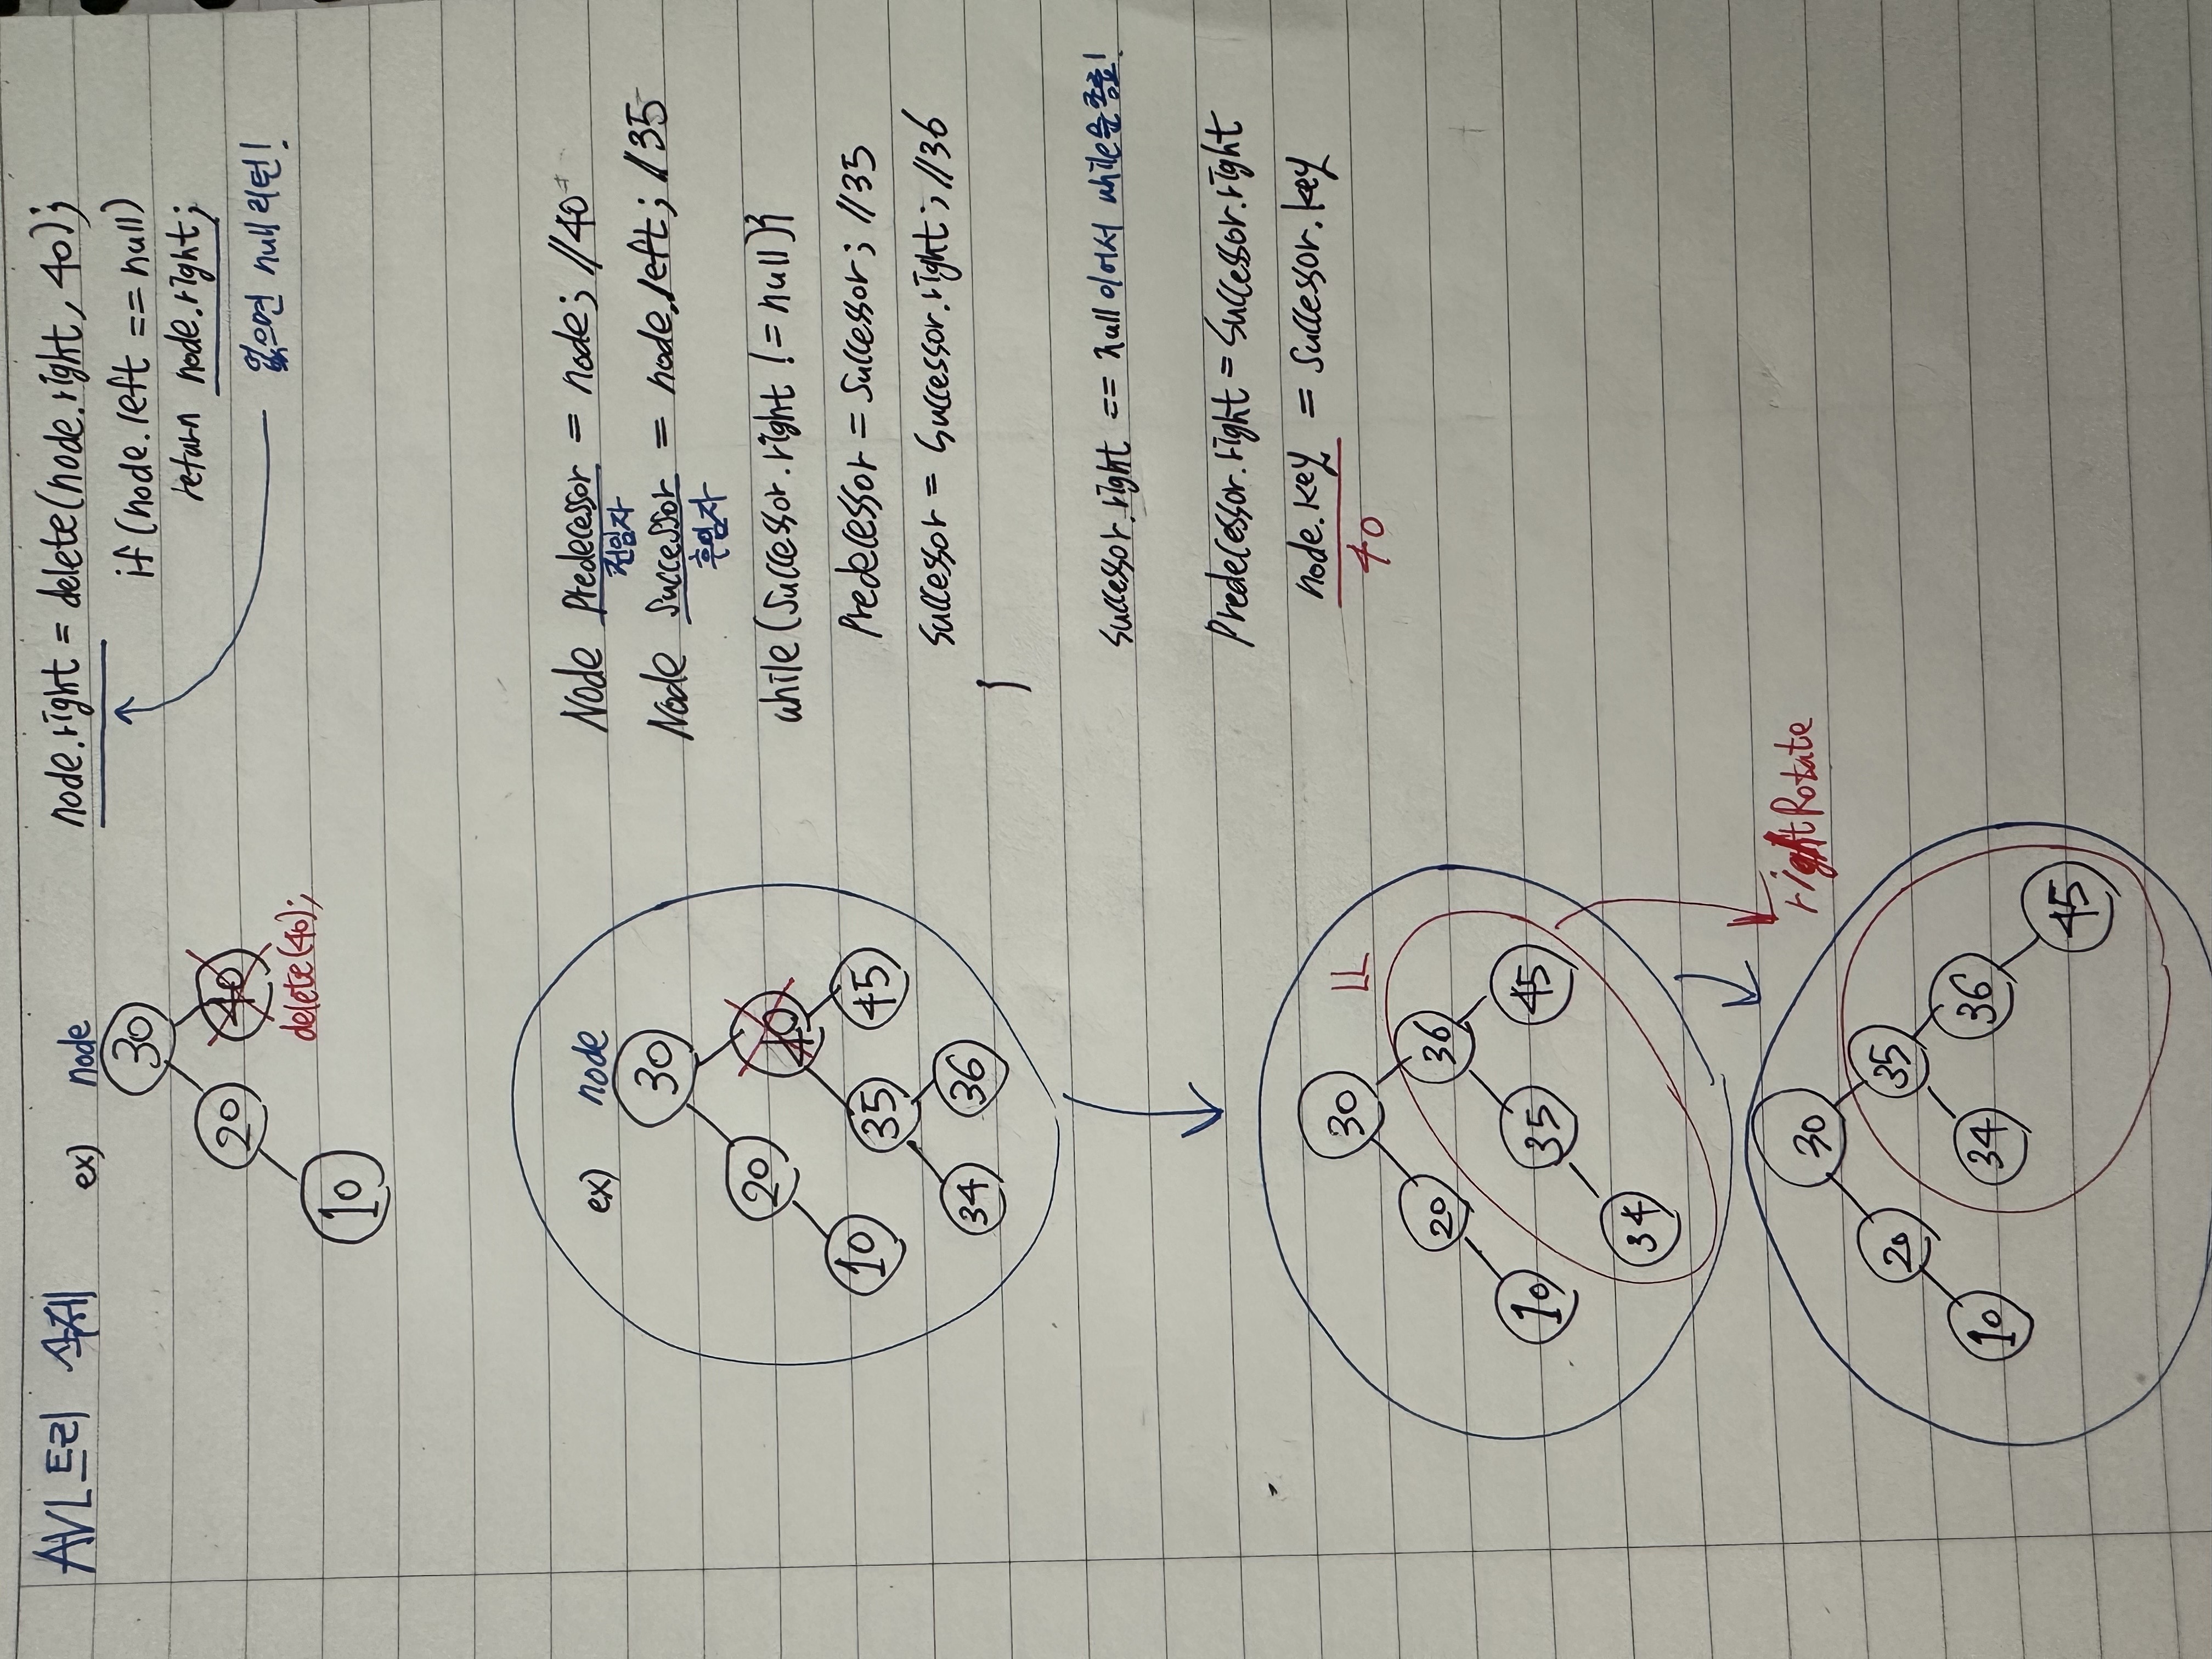 AVL트리 삭제
ex) node
30
20 40
delete(40);
10
node.right = delete(node.right, 40);
if(node.left == null)
return node.right;
없으면 null 리턴!
ex) node
30
20 40
10 35 45
34 36
Node Predecessor = node; //40
전임자
Node Successor = node.left; //35
후임자
while(Successor.right != null){
Predecessor = Successor; //35
Successor = Successor.right; //36
}
Successor.right == null 이어서 while문 종료!
Predecessor.right = Successor.right
node.key = Successor.key
40
30
LL
20 36
10 35 45
34
rightRotate
30
20 35
10 34 36
45